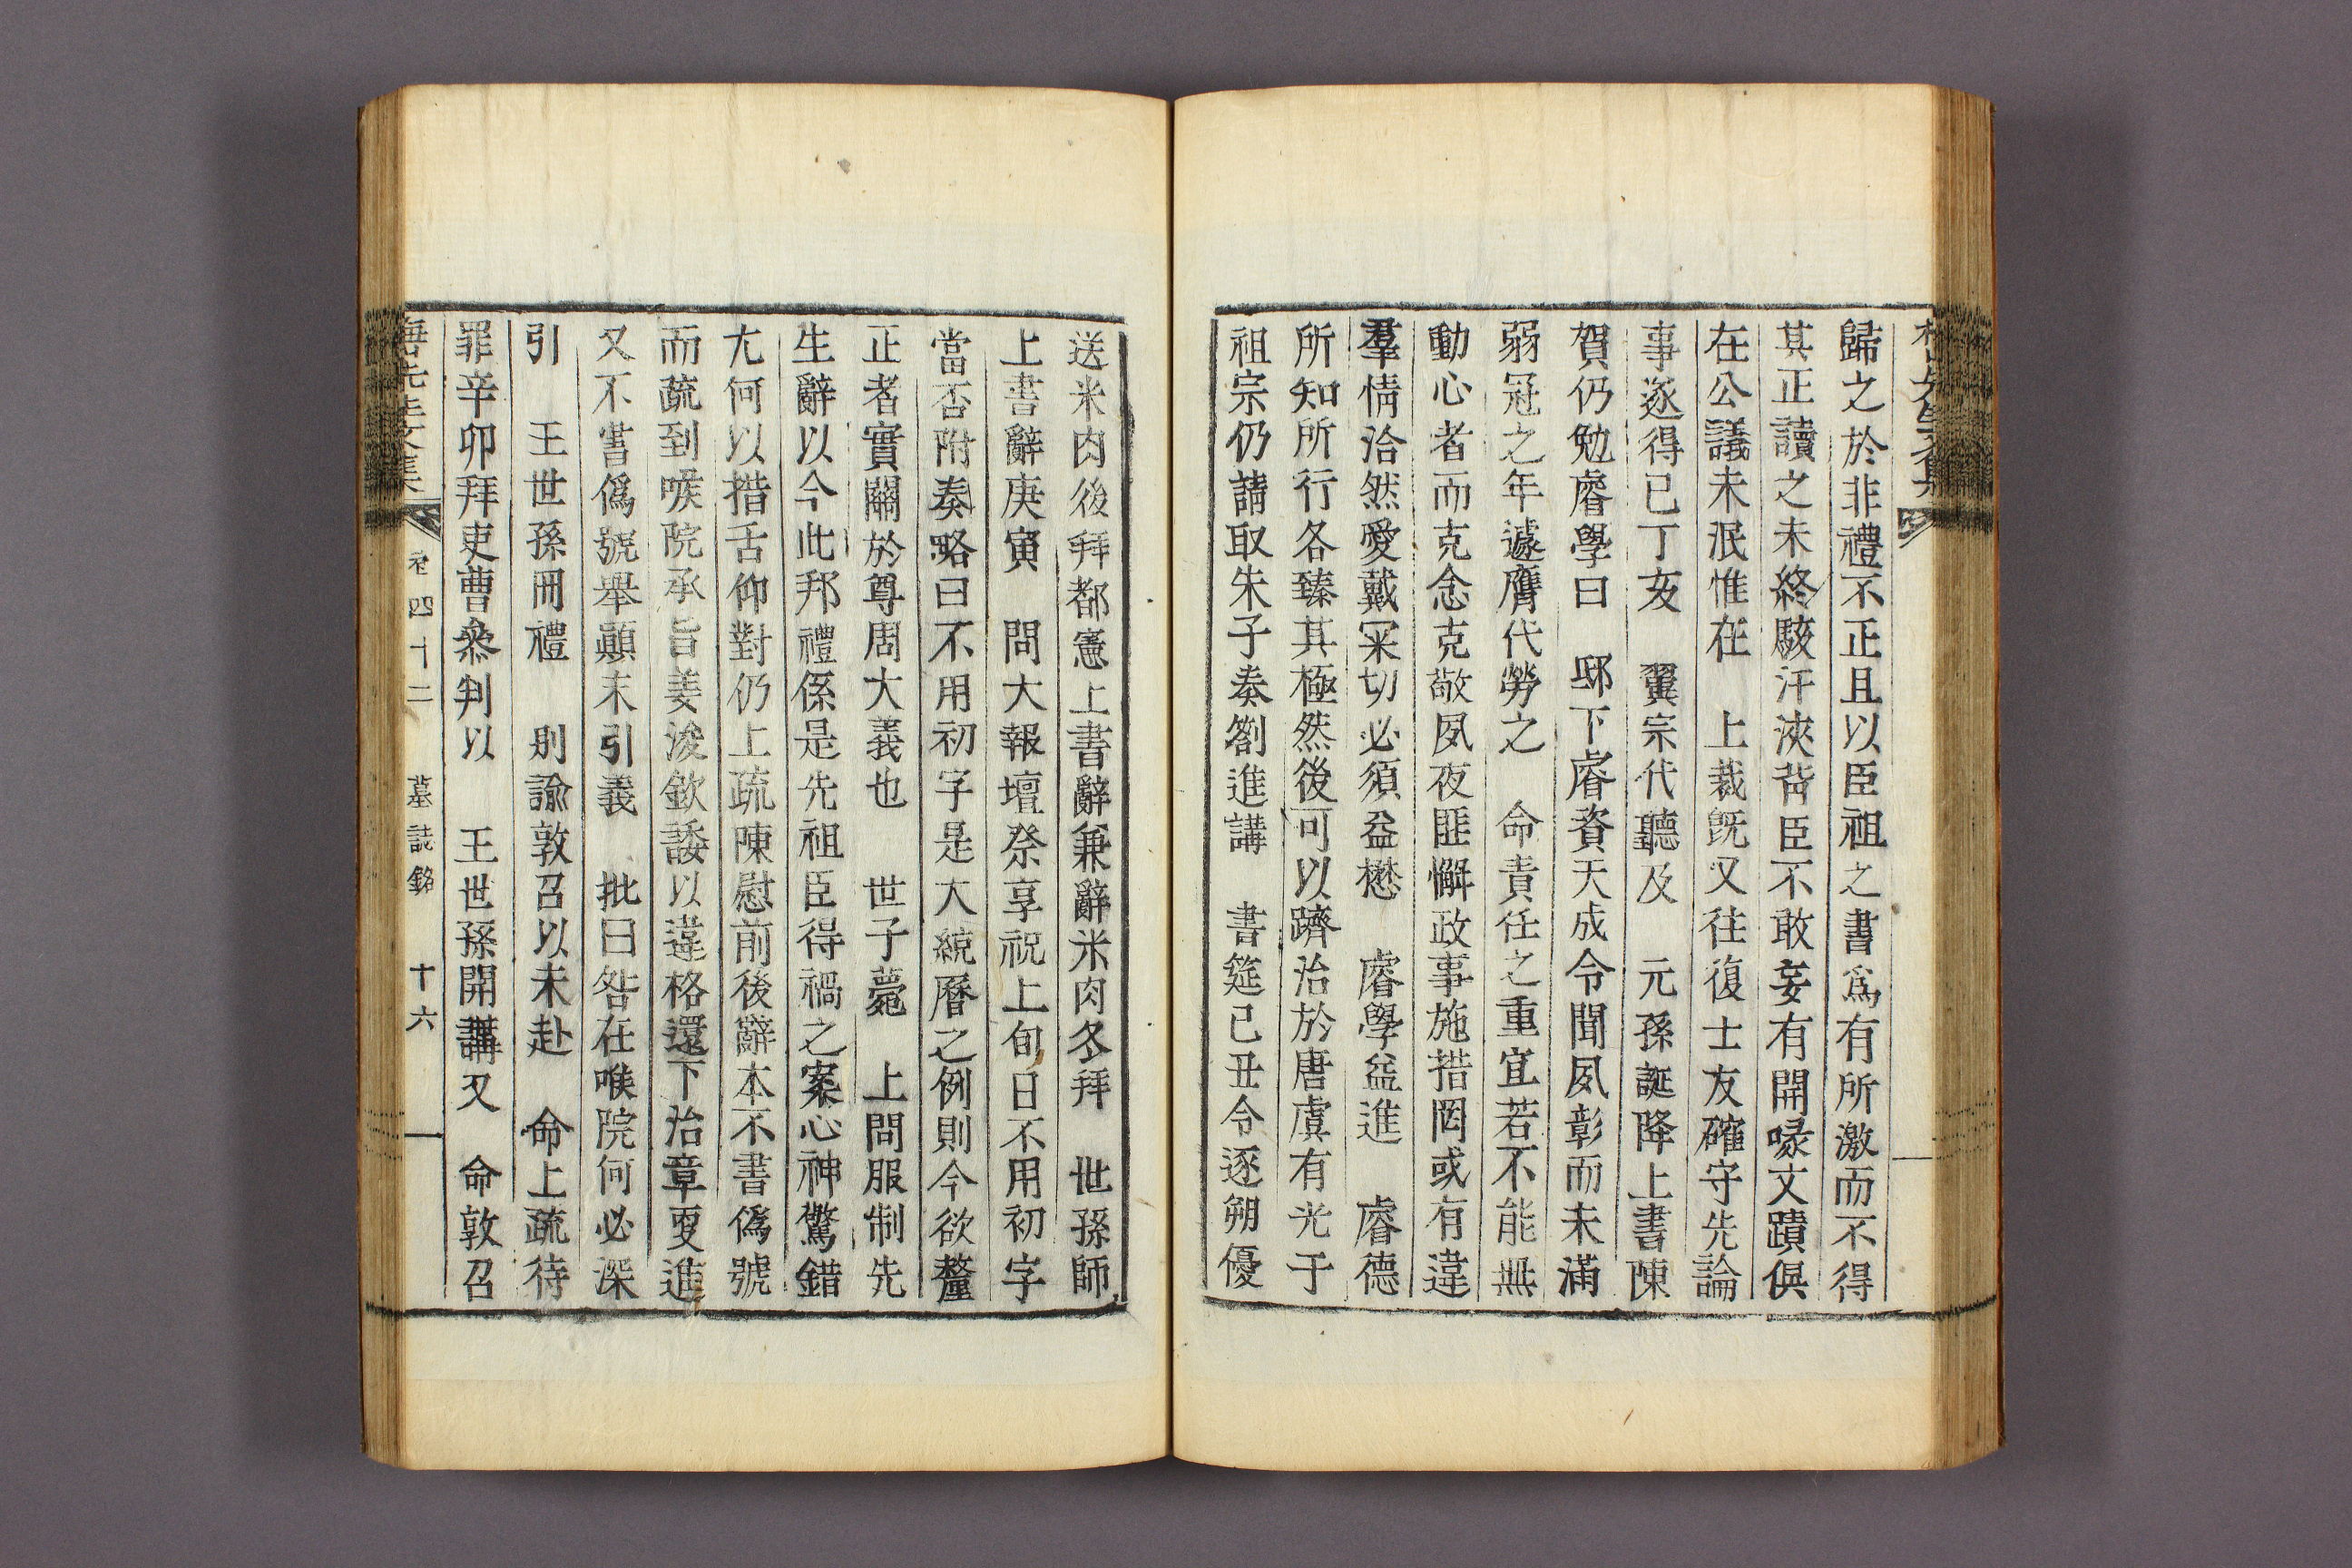 歸之於非禮不正且以臣祖之書爲有所激而不得
其正讀之未終駭汗浹背臣不敢妄有開喙文蹟俱
在公議未泯惟在 上裁旣又往復士友確守先論
事遂得已丁亥 翼宗代聽及 元孫誕降上書陳
賀仍勉睿學曰 邸下睿資天成令聞夙彰而未滿
弱冠之年遽膺代勞之 命責任之重宜若不能無
動心者而克念克敬夙夜匪懈政事施措罔或有違
羣情洽然愛戴冞切必須益懋 睿學益進 睿德
所知所行各臻其極然後可以躋治於唐虞有光于
祖宗仍請取朱子奏劄進講 書筵己丑令逐朔優
送米肉後拜都憲上書辭兼辭米肉冬拜 世孫師
上書辭庚寅 問大報壇祭享祝上旬日不用初字
當否附奏略曰不用初字是大統曆之例則今欲釐
正者實關於尊周大義也 世子薨 上問服制先
生辭以今此邦禮係是先祖臣得禍之案心神驚錯
尢何以措舌仰對仍上疏陳慰前後辭本不書僞號
而疏到喉院承旨姜浚欽諉以違格還下治章更進
又不書僞號舉顚末引義 批曰咎在喉院何必深
引 王世孫冊禮 則諭敦召以未赴 命上疏待
罪辛卯拜吏曹叅判以 王世孫開講又 命敦召
先生文集 卷四十二 墓誌銘 十六